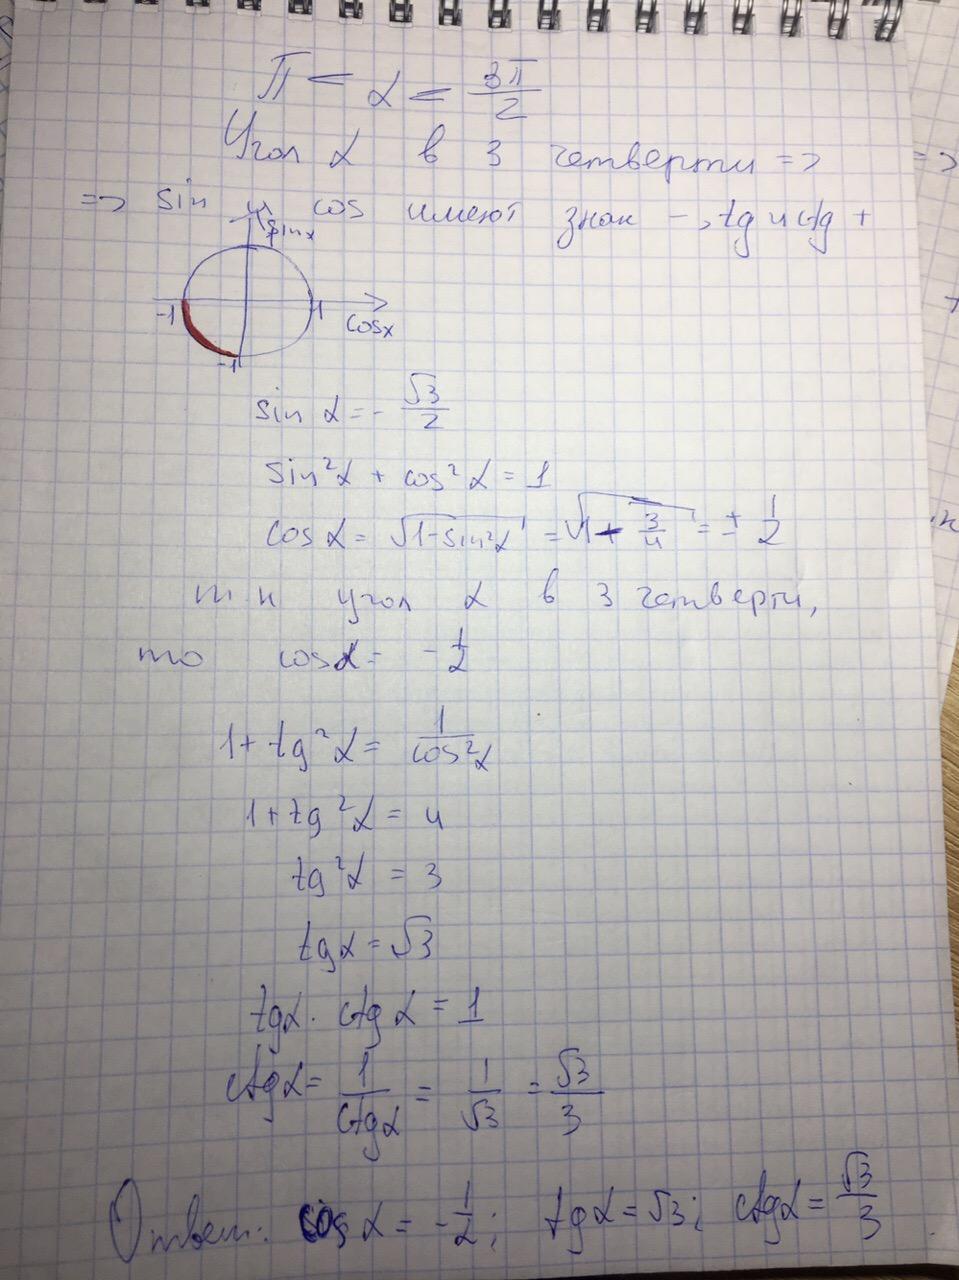 π < α < 3π/2
Угол α в 3 четверти =>
=> sin и cos имеют знак -, tg и ctg +
sinx
-1 1 cosx
-1
sin α = - √3/2
sin²α + cos²α = 1
cos α = √(1-sin²α) = √(1 - 3/4) = ± 1/2
т к угол α в 3 четверти,
то cosα = - 1/2
1 + tg²α = 1/cos²α
1 + tg²α = 4
tg²α = 3
tgα = √3
tgα · ctg α = 1
ctgα = 1/ctgα = 1/√3 = √3/3
Ответ: cos α = - 1/2; tgα = √3; ctgα = √3/3